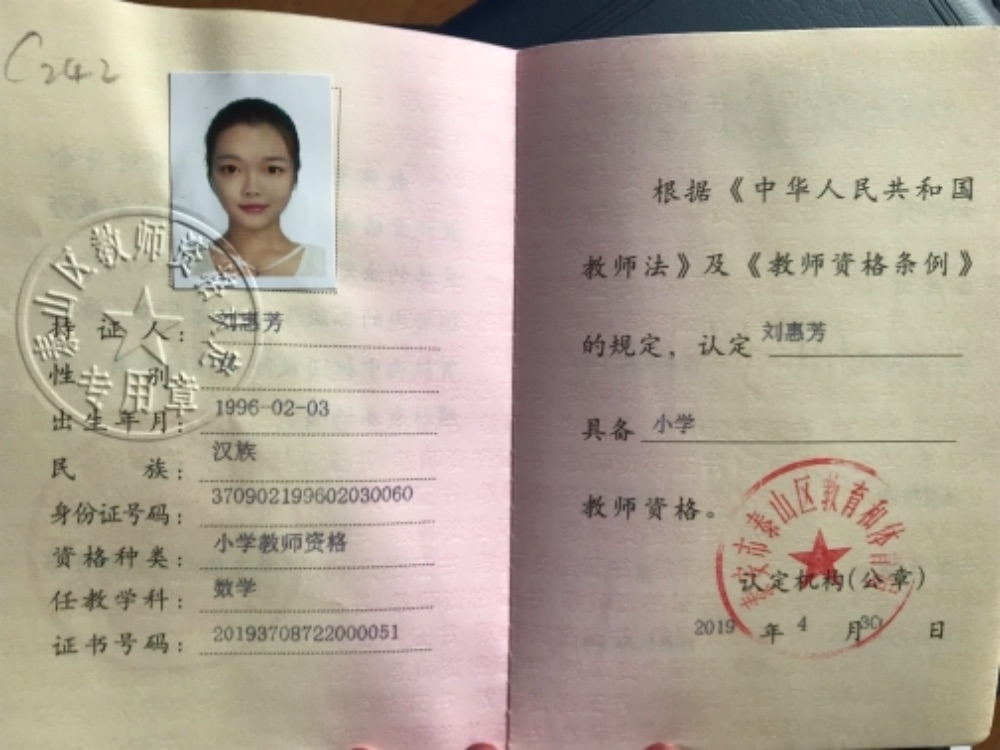 C242
泰山区教师资格认定
专用章
持证人：刘惠芳
性别：
出生年月：1996-02-03
民族：汉族
身份证号码：370902199602030060
资格种类：小学教师资格
任教学科：数学
证书号码：20193708722000051
根据《中华人民共和国
教师法》及《教师资格条例》
的规定，认定 刘惠芳
具备 小学
教师资格。
泰安市泰山区教育和体育局
认定机构(公章)
2019 年 4 月 30 日